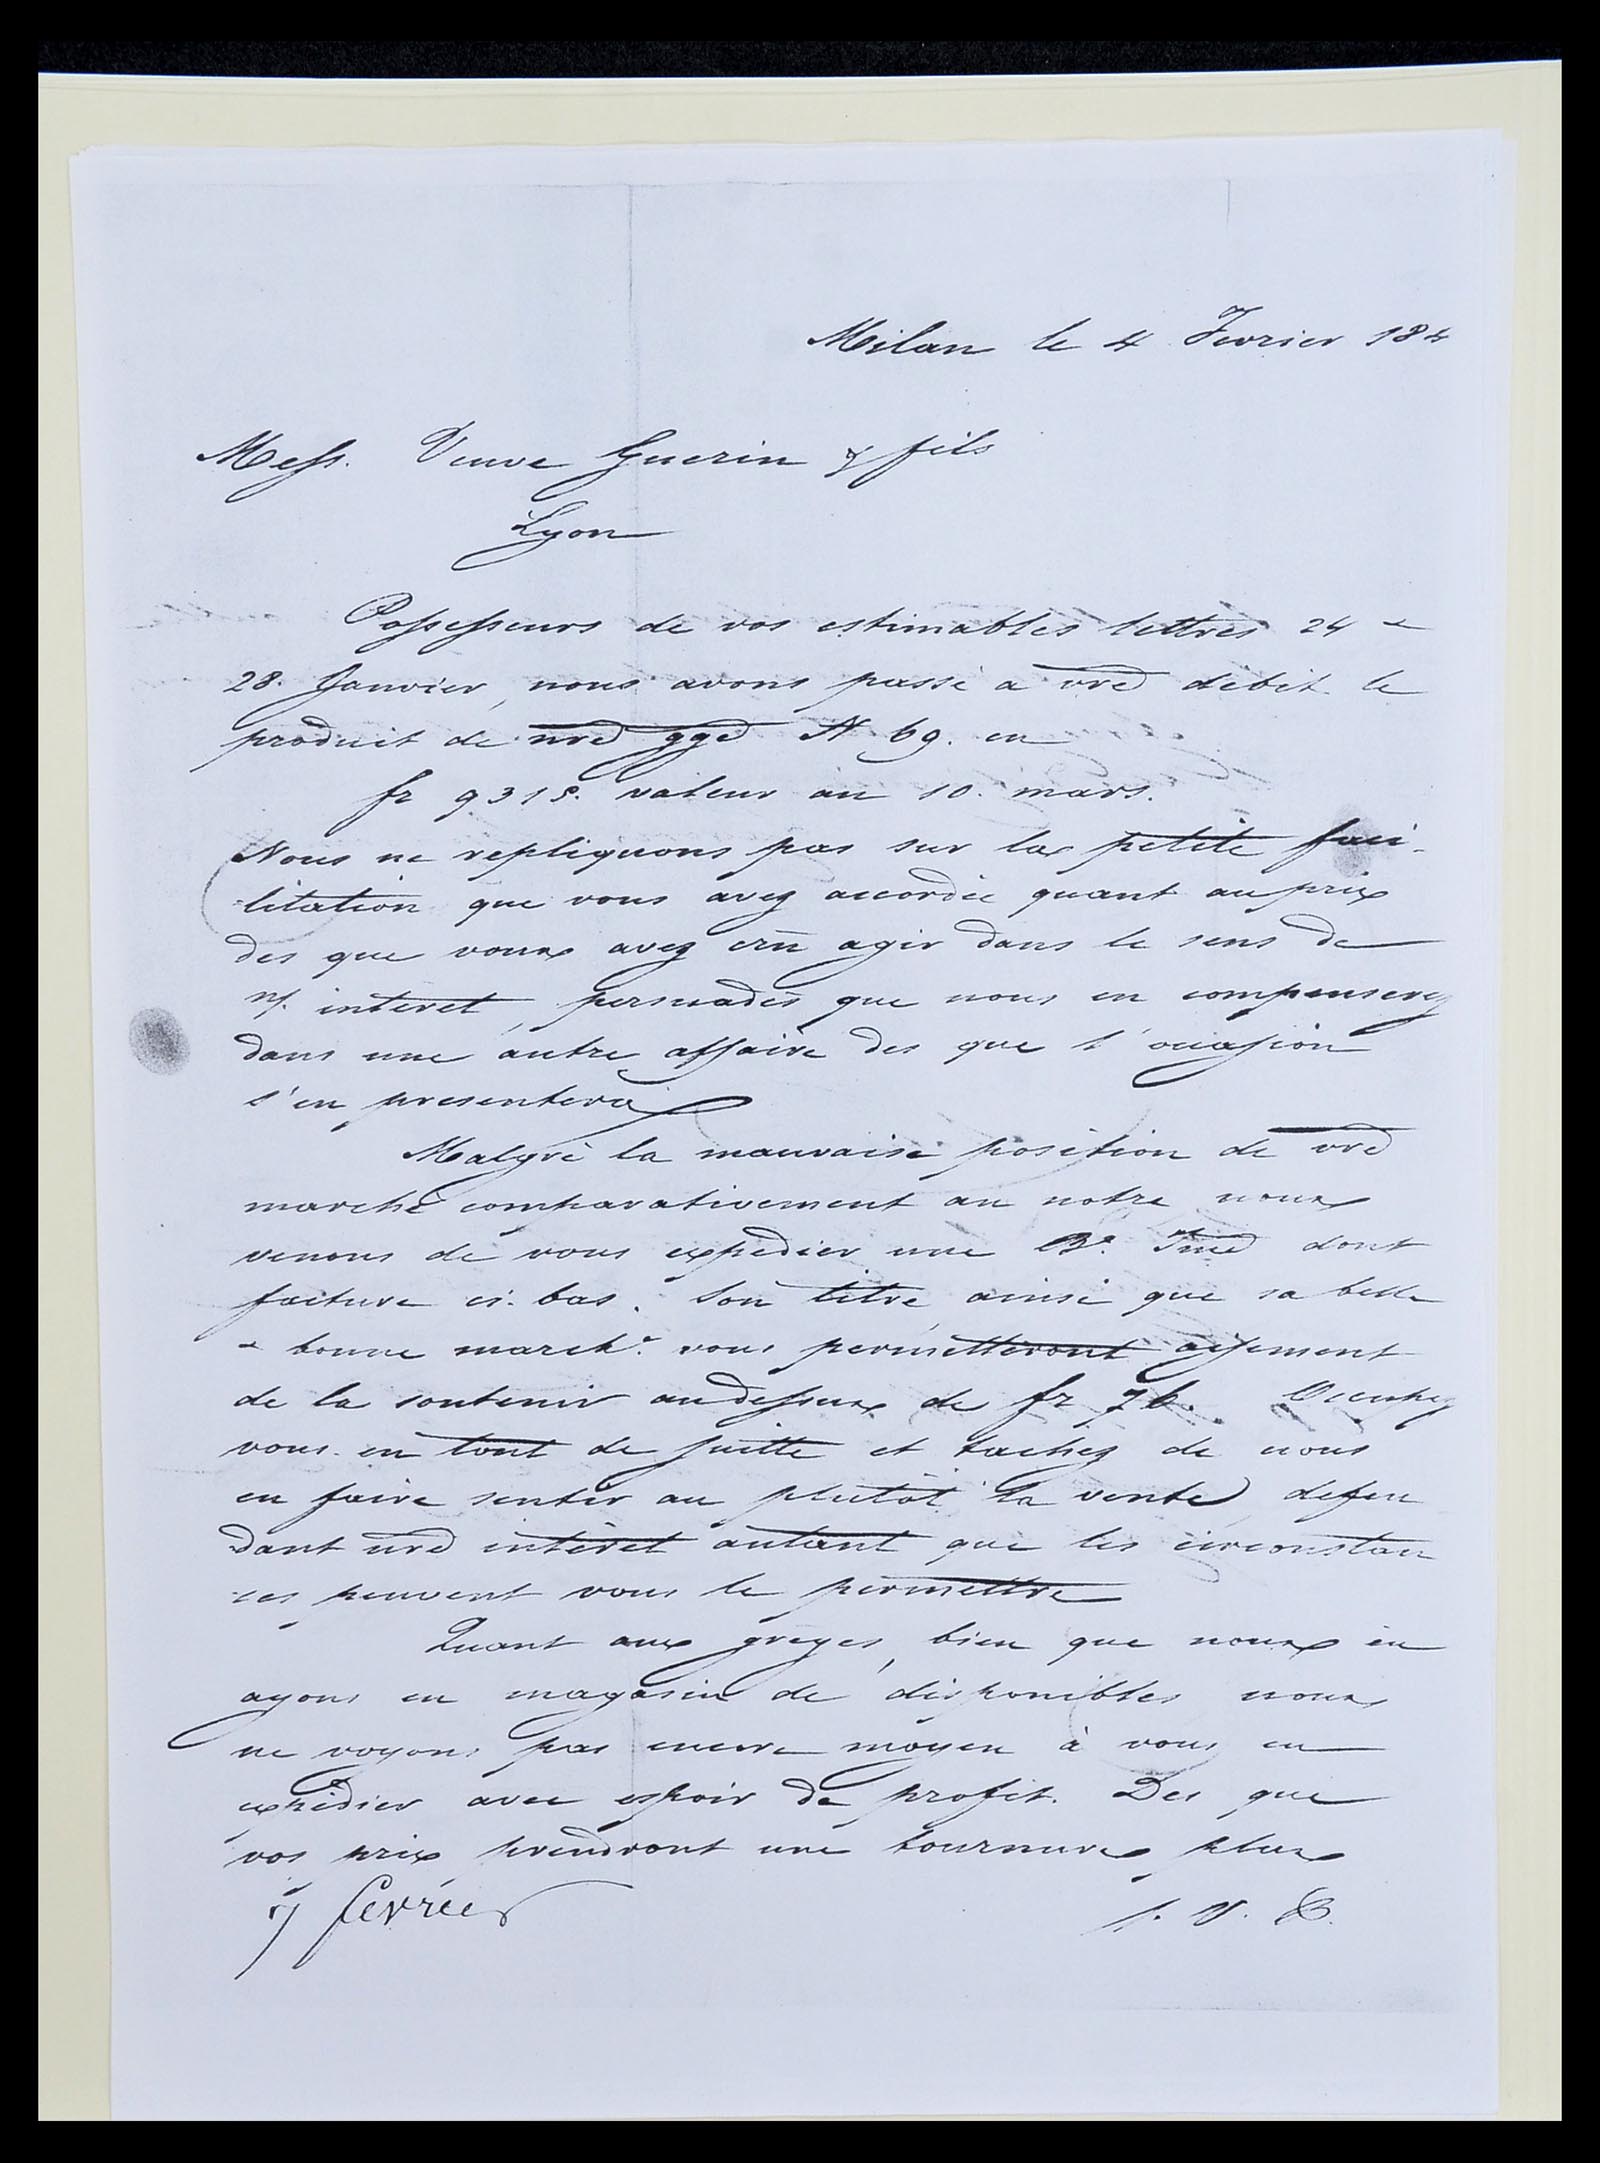 Milan le 4 Fevrier 184
Mess. Veuve Guerin & fils
Lyon
Possesseurs de vos estimables lettres 24 &
28. Janvier, nous avons passé a vre debit le
produit de nre gge N 69. en
fr 9315. valeur au 10. mars.
Nous ne repliquons pas sur la petite faci-
litation que vous avez accordée quant au prix
des que vous avez crû agir dans le sens de
n/. interet, persuadés que nous en compenserez
dans une autre affaire des que l'occasion
s'en presentera
Malgré la mauvaise position de vre
marché comparativement au notre nous
venons de vous expedier une Be. dont
facture ci. bas. Son titre, ainsi que sa belle
& bonne march.e vous permetteront aisement
de la soutenir audessus de fr 76. Occupez
vous en tout de suitte et tachez de nous
en faire sentir au plutôt la vente, defen
dant nre intèrèt autant que les circonstan
ces peuvent vous le permettre
Quant aux greges, bien que nous en
ayons en magasin de disponibles nous
ne voyons pas encore moyen à vous en
expédier avec espoir de profit. Des que
vos prix prendront une tournure plus
7 fevrier
s. V. P.